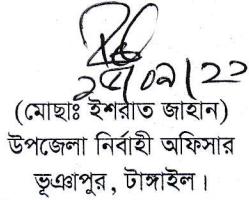 ২৫/০৭/২২
(মোছাঃ ইশরাত জাহান)
উপজেলা নির্বাহী অফিসার
ভূঞাপুর, টাঙ্গাইল।